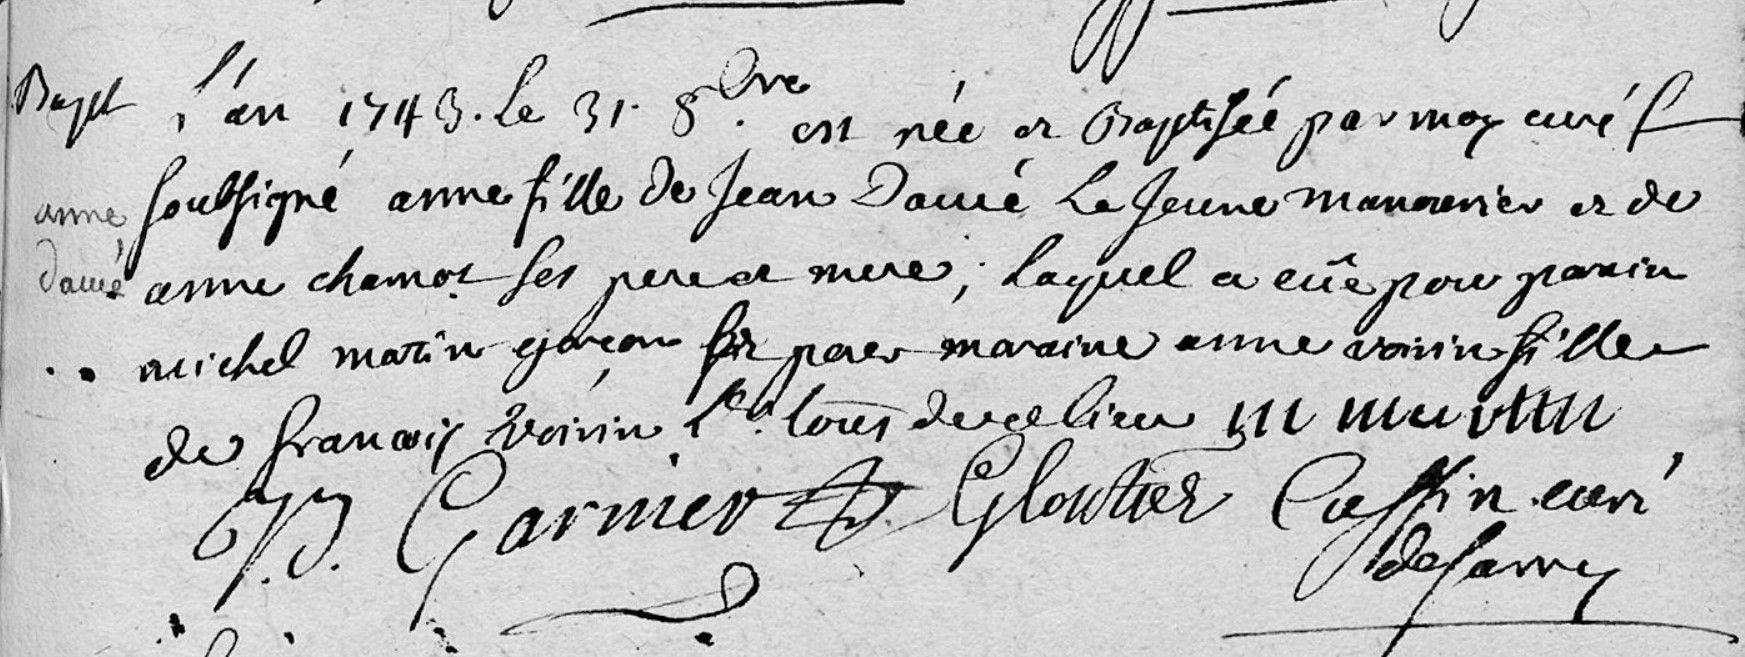 Bapt l'an 1743. Le 31. 8bre. est née et Baptisée par moy curé
anne soubsigné anne fille de Jean Davié Le Jeune manouvrier et de
Davié anne chamot ses pere et mere, laquel a eüe pour parain
michel matin garçon et pour maraine anne voirin fille
de françois voirin tous de ce lieu m martin
J.B. Garnier Gloutier Cassin curé
de Sarry